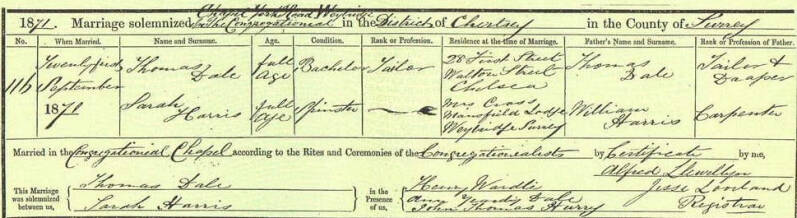 Chapel York Road Weybridge
1871. Marriage solemnized in the Congregational in the District of Chertsey in the County of Surrey
No. When Married. Name and Surname. Age. Condition. Rank or Profession. Residence at the time of Marriage. Father's Name and Surname. Rank or Profession of Father.
116 Twenty first September 1871 Thomas Dale full Age Bachelor Tailor 28 First Street Walton Street Chelsea Thomas Dale Tailor & Draper
Sarah Harris full Age Spinster — Mrs Cross Mansfield Lodge Weybridge Surrey William Harris Carpenter
Married in the Congregational Chapel according to the Rites and Ceremonies of the Congregationalists by Certificate by me,
This Marriage was solemnized between us, Thomas Dale Sarah Harris in the Presence of us, Henry Wardle Ann Dale John Thomas Hurry Alfred Llewellyn Jesse Registrar